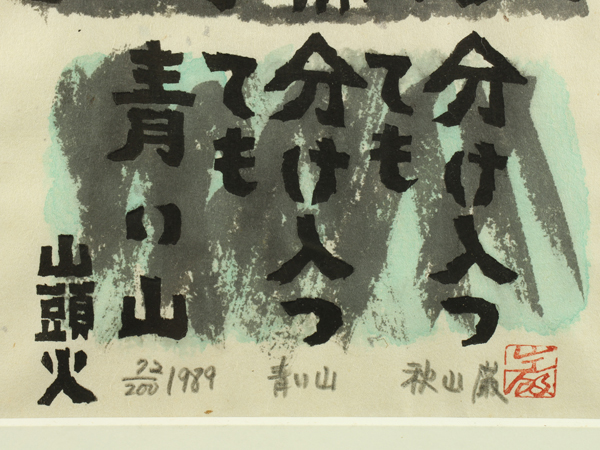 分け入つ
ても
分け入つ
ても
青い山
山頭火
72/200 1989 青い山 秋山巌